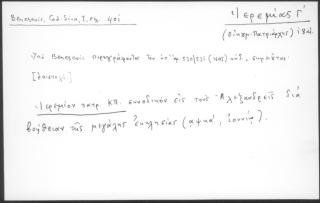 Benesevic, Cod. Sin., I, σελ. 401
Ἱερεμίας Γ΄
(Οἰκουμ. Πατριάρχης) ἰδ.
Ὑπὸ Benesevic περιγράφεται ὑπ' ἀρ. 530/531 (1205) κῶδ.
[ἐπιστολὴ]
Ἱερεμίου πατρ. ΚΠ. συνοδικὸν εἰς τοὺς Ἀλεξανδρεῖς διὰ
βοήθειαν τῆς μεγάλης ἐκκλησίας (αψκα΄, ἰουνίῳ).